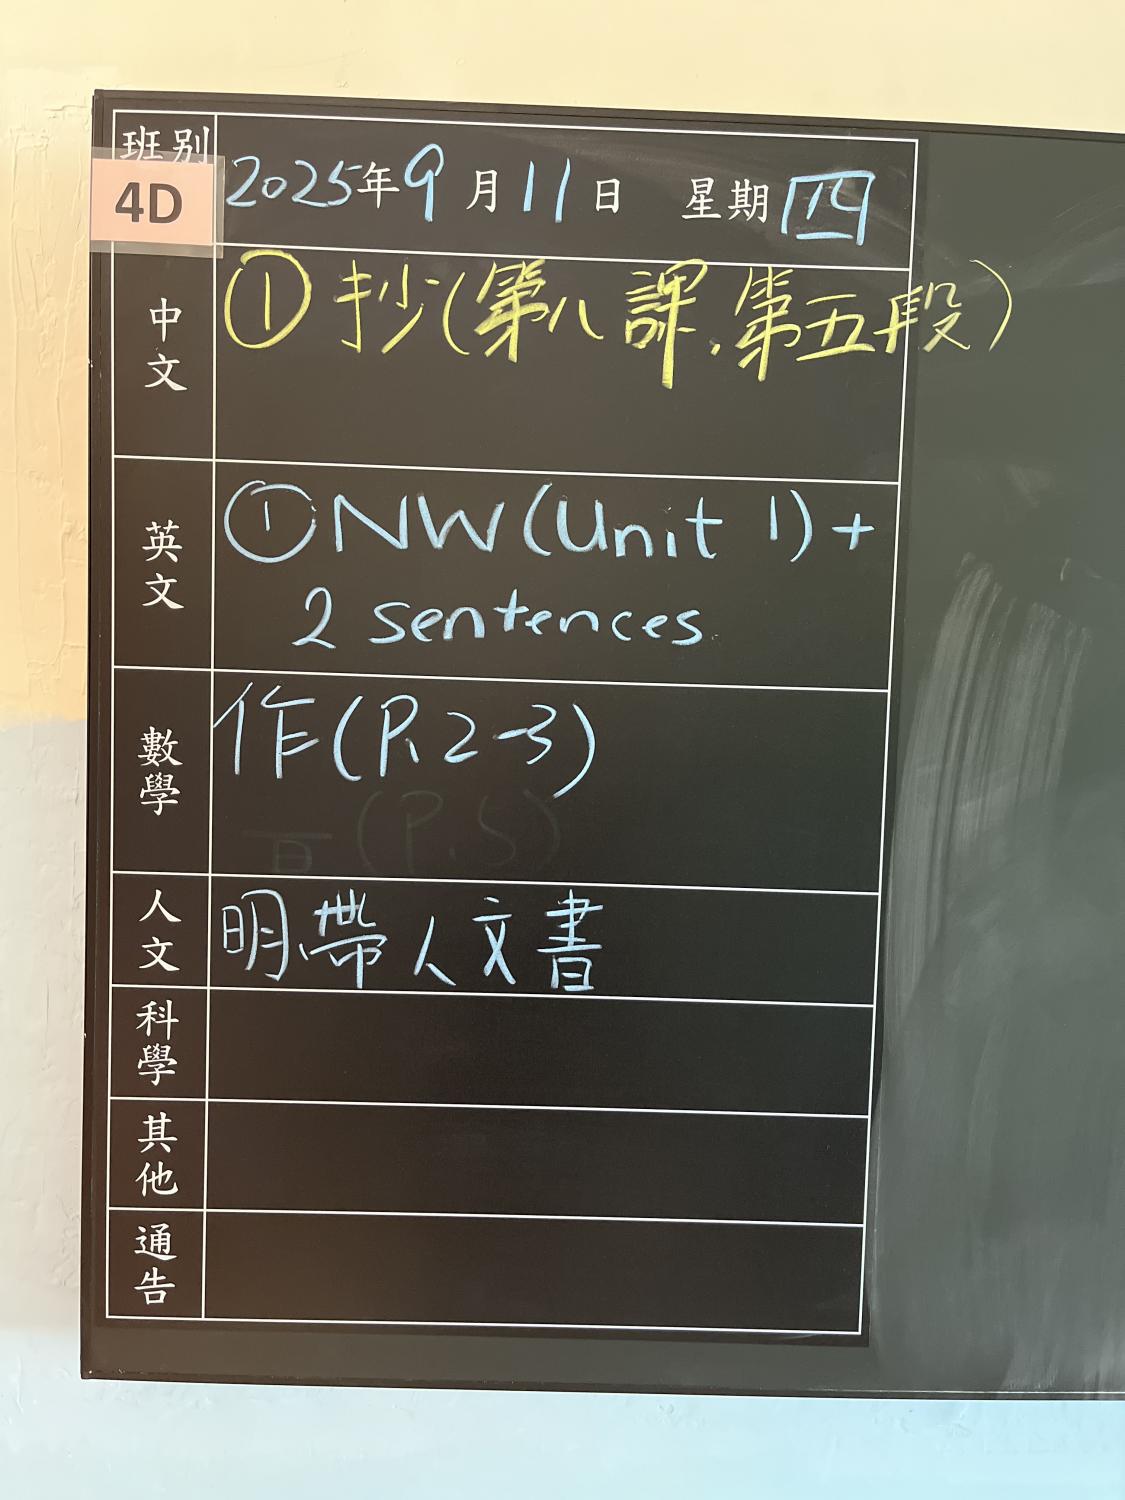 班別
4D
2025年9月11日 星期四
中文
①抄(第八課,第五段)
英文
①NW(Unit 1)+
2 sentences
數學
作(P.2-3)
(P.5)
人文
明帶人文書
科學
其他
通告